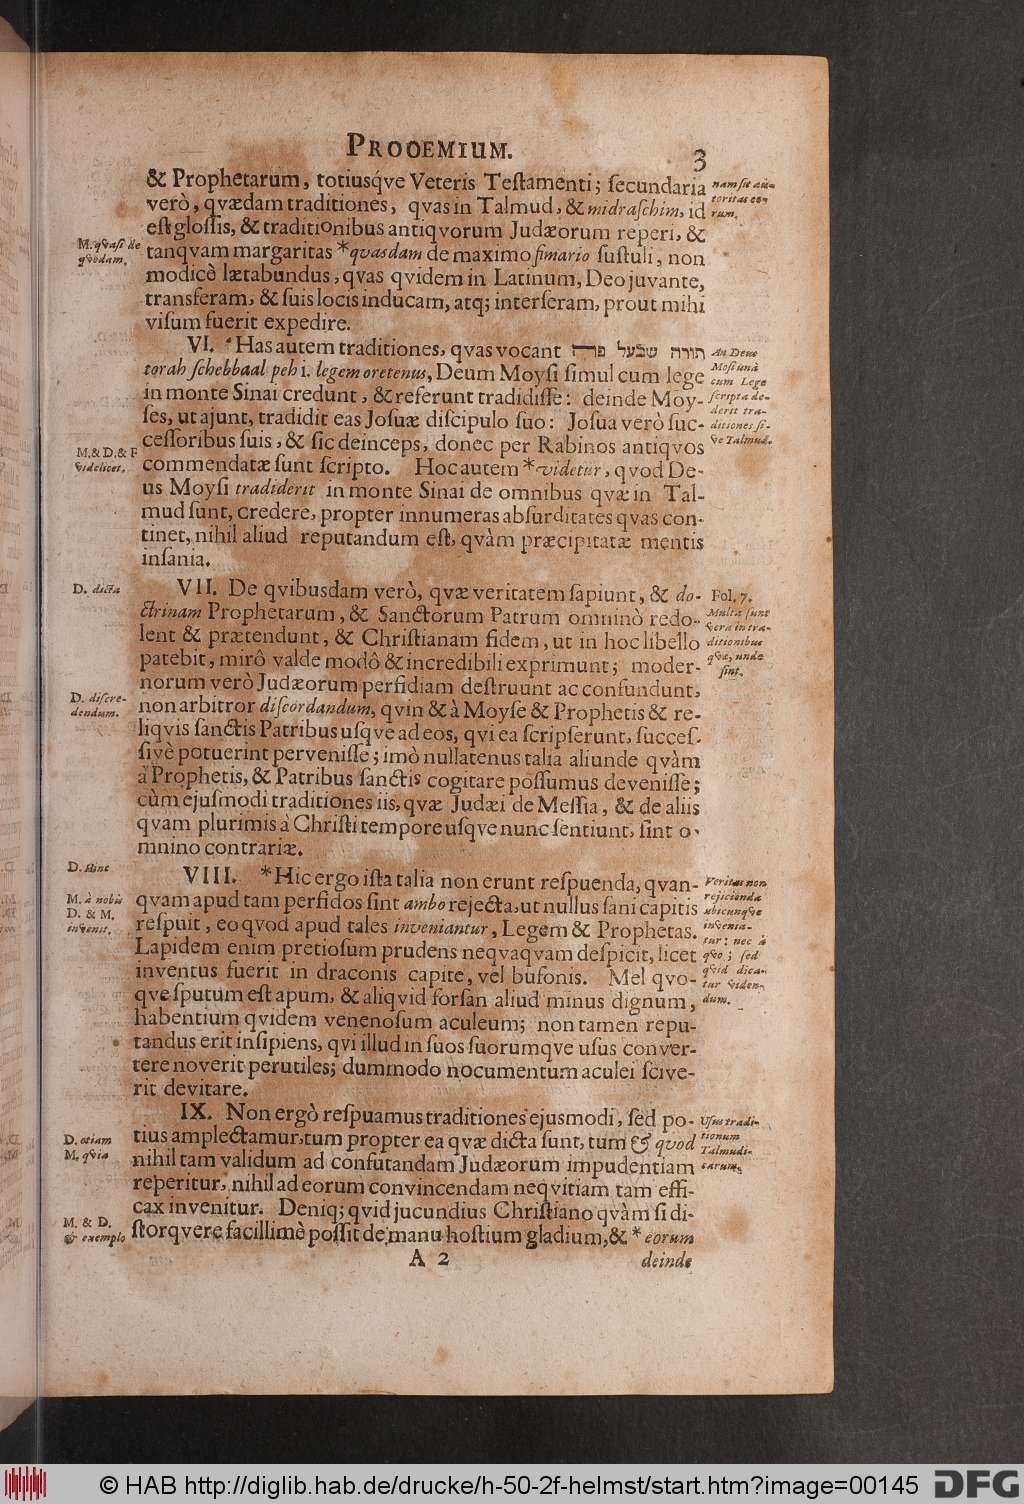 PROOEMIUM.
3
& Prophetarum, totiusqve Veteris Teſtamenti; ſecundaria
verò, qvædam traditiones, qvas in Talmud, & midraſchim, id
eſt gloſſis, & traditionibus antiqvorum Judæorum reperi, &
tanqvam margaritas *quasdam de maximo fimario ſuſtuli, non
modicè lætabundus, qvas qvidem in Latinum, Deo juvante,
transferam, & ſuis locis inducam, atq; interſeram, prout mihi
viſum fuerit expedire.
nam ſit au-
toritas eo-
rum.
M. qvaſi de
qvodam.
VI. *Has autem traditiones, qvas vocant תורה שבעל פה
torah ſchebbaal peh i. legem oretenus, Deum Moyſi ſimul cum lege
in monte Sinai credunt, & referunt tradidiſſe: deinde Moy-
ſes, ut ajunt, tradidit eas Joſuæ diſcipulo ſuo: Joſua verò ſuc-
ceſſoribus ſuis, & ſic deinceps, donec per Rabinos antiqvos
commendatæ ſunt ſcripto. Hoc autem *videtur, qvod De-
us Moyſi tradiderit in monte Sinai de omnibus qvæ in Tal-
mud ſunt, credere, propter innumeras abſurditates qvas con-
tinet, nihil aliud reputandum eſt, qvàm præcipitatæ mentis
inſania.
An Deus
Moſi unà
cum Lege
ſcripta de-
derit tra-
ditiones ſi-
ve Talmud.
M. & D. & F
videlicet.
VII. De qvibusdam verò, qvæ veritatem ſapiunt, & do-
ctrinam Prophetarum, & Sanctorum Patrum omninò redo-
lent & prætendunt, & Chriſtianam fidem, ut in hoc libello
patebit, mirô valde modô & incredibili exprimunt; moder-
norum verò Judæorum perfidiam deſtruunt ac confundunt,
non arbitror diſcordandum, qvin & à Moyſe & Prophetis & re-
liqvis ſanctis Patribus uſqve ad eos, qvi ea ſcripſerunt, ſucceſ-
ſivè potuerint perveniſſe; imò nullatenus talia aliunde qvàm
à Prophetis, & Patribus ſanctis cogitare poſſumus deveniſſe;
cùm ejuſmodi traditiones iis, qvæ Judæi de Meſſia, & de aliis
qvam plurimis à Chriſti tempore uſqve nunc ſentiunt, ſint o-
mnino contrariæ.
D. dicta
D. diſcre-
dendum.
Fol. 7.
Multa ſunt
vera in tra-
ditionibus
qvæ, unde
ſint.
VIII. *Hic ergo iſta talia non erunt reſpuenda, qvan-
qvam apud tam perfidos ſint ambo rejecta, ut nullus ſani capitis
reſpuit, eo qvod apud tales inveniantur, Legem & Prophetas.
Lapidem enim pretioſum prudens neqvaqvam deſpicit, licet
inventus fuerit in draconis capite, vel bufonis. Mel qvo-
qve ſputum eſt apum, & aliqvid forſan aliud minus dignum,
habentium qvidem venenoſum aculeum; non tamen repu-
tandus erit inſipiens, qvi illud in ſuos ſuorumqve uſus conver-
tere noverit perutiles; dummodo nocumentum aculei ſcive-
rit devitare.
D. Hinc
M. à nobis
D. & M.
invenit.
Veritas non
rejicienda
ubicunqve
invenia-
tur: nec à
qvo; ſed
qvid dica-
tur viden-
dum.
IX. Non ergò reſpuamus traditiones ejusmodi, ſed po-
tius amplectamur, tum propter ea qvæ dicta ſunt, tum & quod
nihil tam validum ad confutandam Judæorum impudentiam
reperitur, nihil ad eorum convincendam neqvitiam tam effi-
cax invenitur. Deniq; qvid jucundius Chriſtiano qvàm ſi di-
ſtorqvere facillimè poſſit de manu hoſtium gladium, & * eorum
D. etiam
M. qvia
M. & D.
& exemplo
Uſus tradi-
tionum
Talmudi-
carum.
A 2
deinde
© HAB http://diglib.hab.de/drucke/h-50-2f-helmst/start.htm?image=00145
DFG